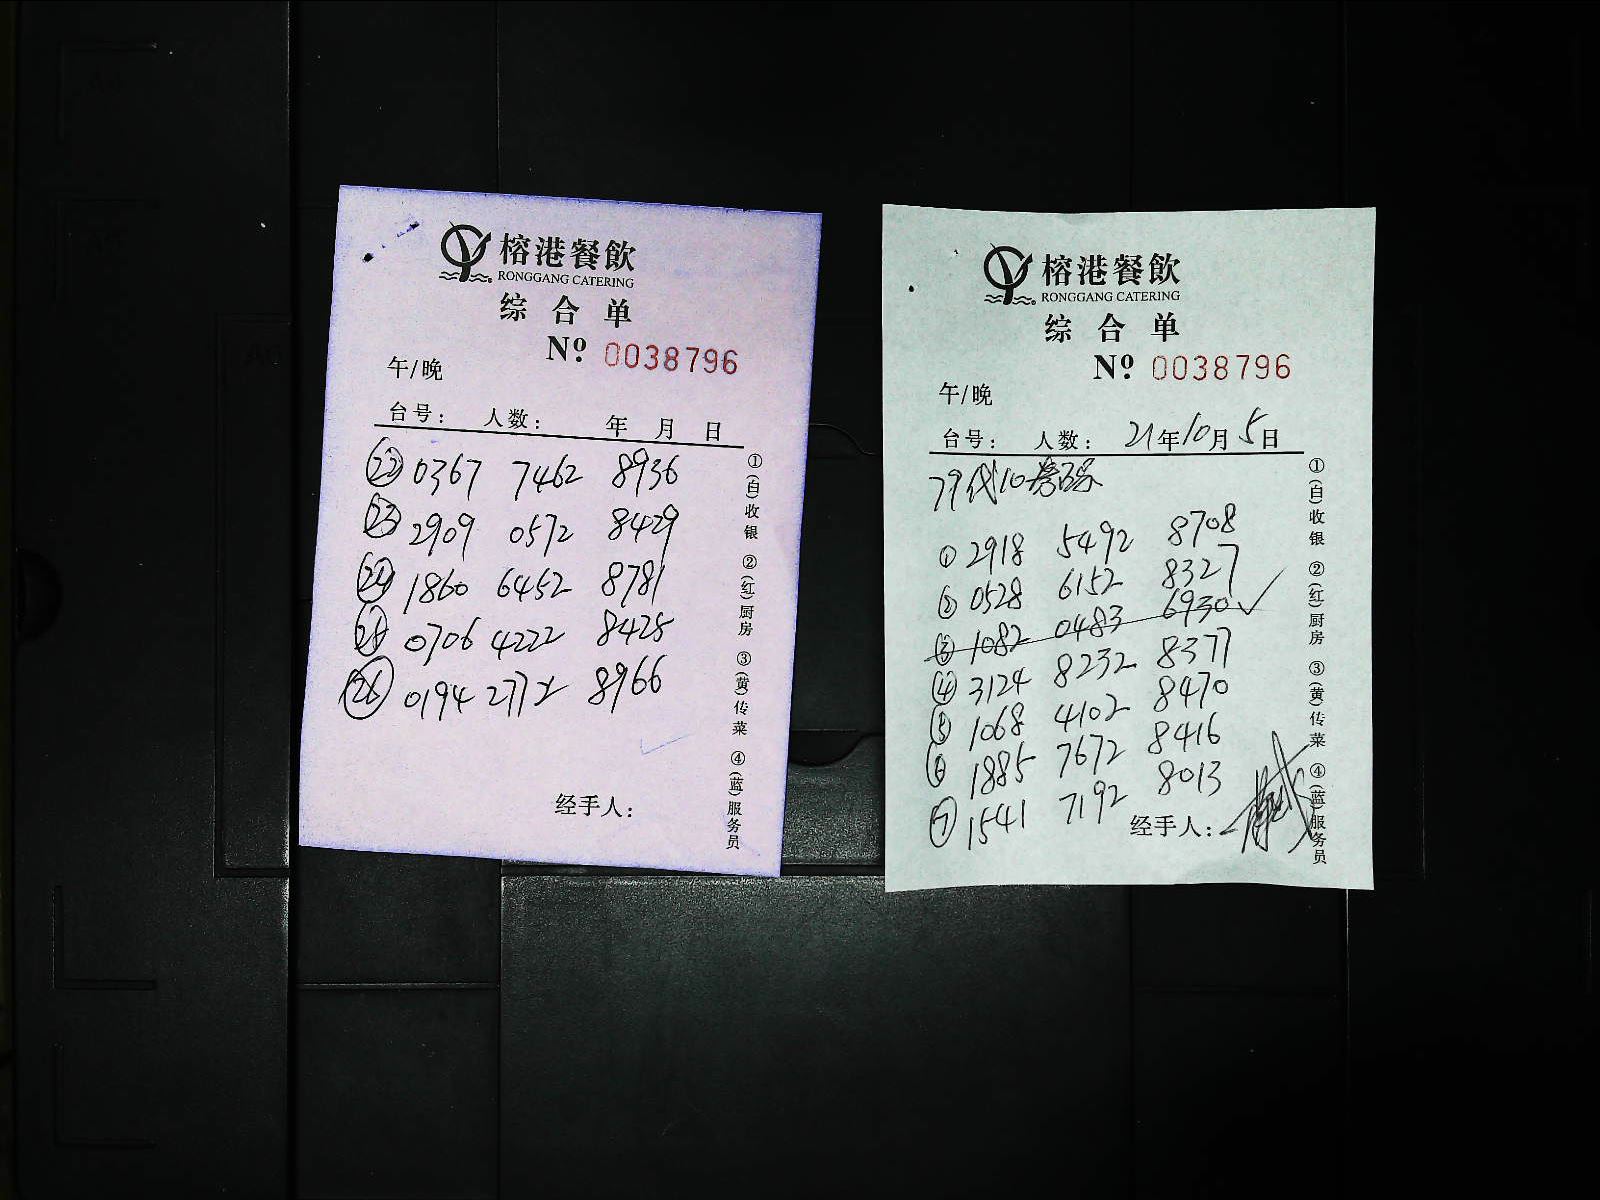 榕港餐飲
RONGGANG CATERING
综合单
Nº 0038796
午/晚
台号： 人数： 年 月 日
㉒ 0367 7462 8936
㉓ 2909 0572 8429
㉔ 1860 6452 8781
㉕ 0706 4222 8425
㉖ 0194 2772 8966
经手人：
①(白)收银 ②(红)厨房 ③(黄)传菜 ④(蓝)服务员
榕港餐飲
RONGGANG CATERING
综合单
Nº 0038796
午/晚
台号： 人数： 21年10月5日
79代10
① 2918 5492 8708
② 0528 6152 8327
③ 1082 0483 6930 ✓
④ 3124 8232 8377
⑤ 1068 4102 8470
⑥ 1885 7672 8416
⑦ 1541 7192 8013
经手人：
①(白)收银 ②(红)厨房 ③(黄)传菜 ④(蓝)服务员